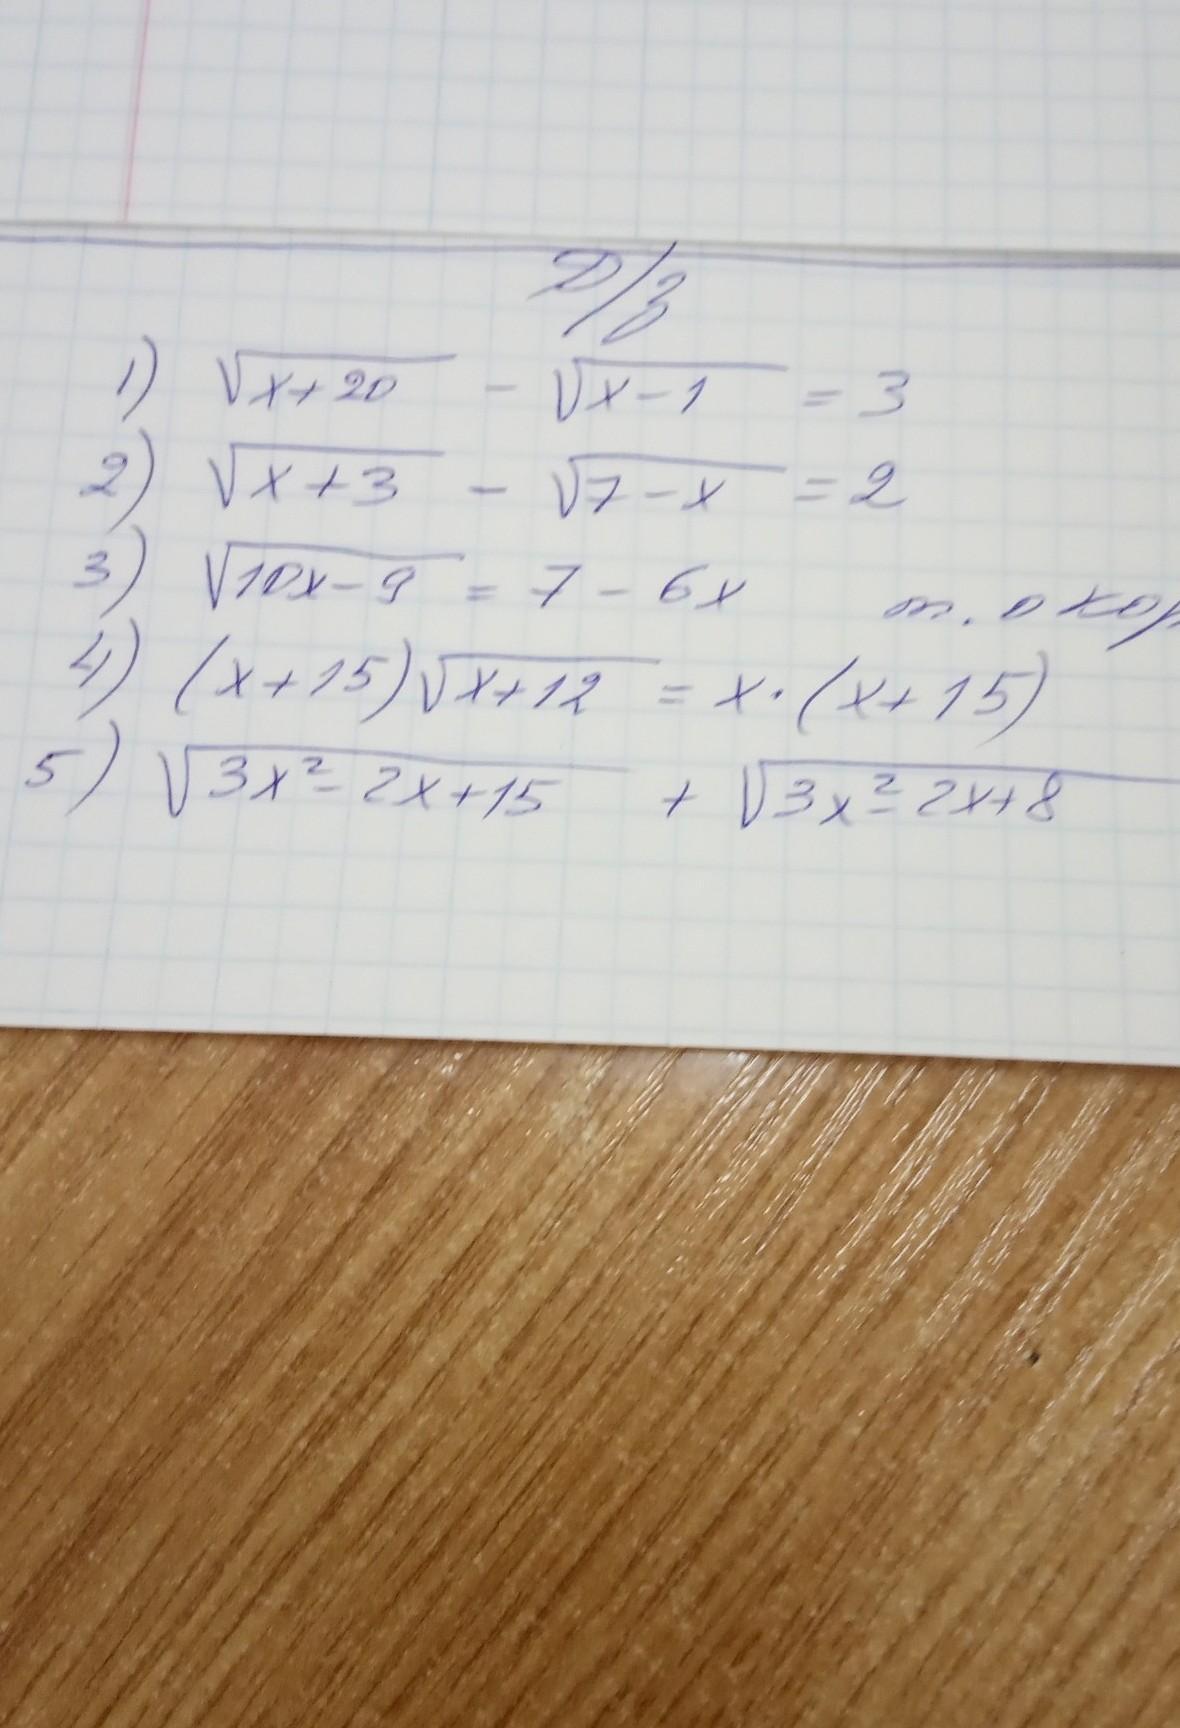 Д/з
1) √(x+20) - √(x-1) = 3
2) √(x+3) - √(7-x) = 2
3) √(10x-9) = 7 - 6x т. о кор
4) (x+15)√(x+12) = x·(x+15)
5) √(3x²-2x+15) + √(3x²-2x+8)